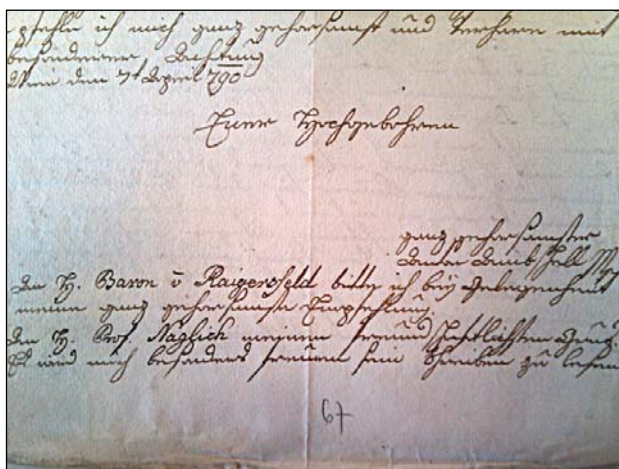 pfehle ich mich ganz gehorsamst und verharre mit
besonderer Achtung
Wien den 7t April 790
Euer Hochgebohren
ganz gehorsamster
H. Baron v Raigersfeld bitte ich beÿ Gelegenheit
meine ganz gehorsamste Empfehlung.
H. Prof. Näglich meinen freundschaftlichsten
Es wird mich besonders freuen sein Schreiben zu lesen
67